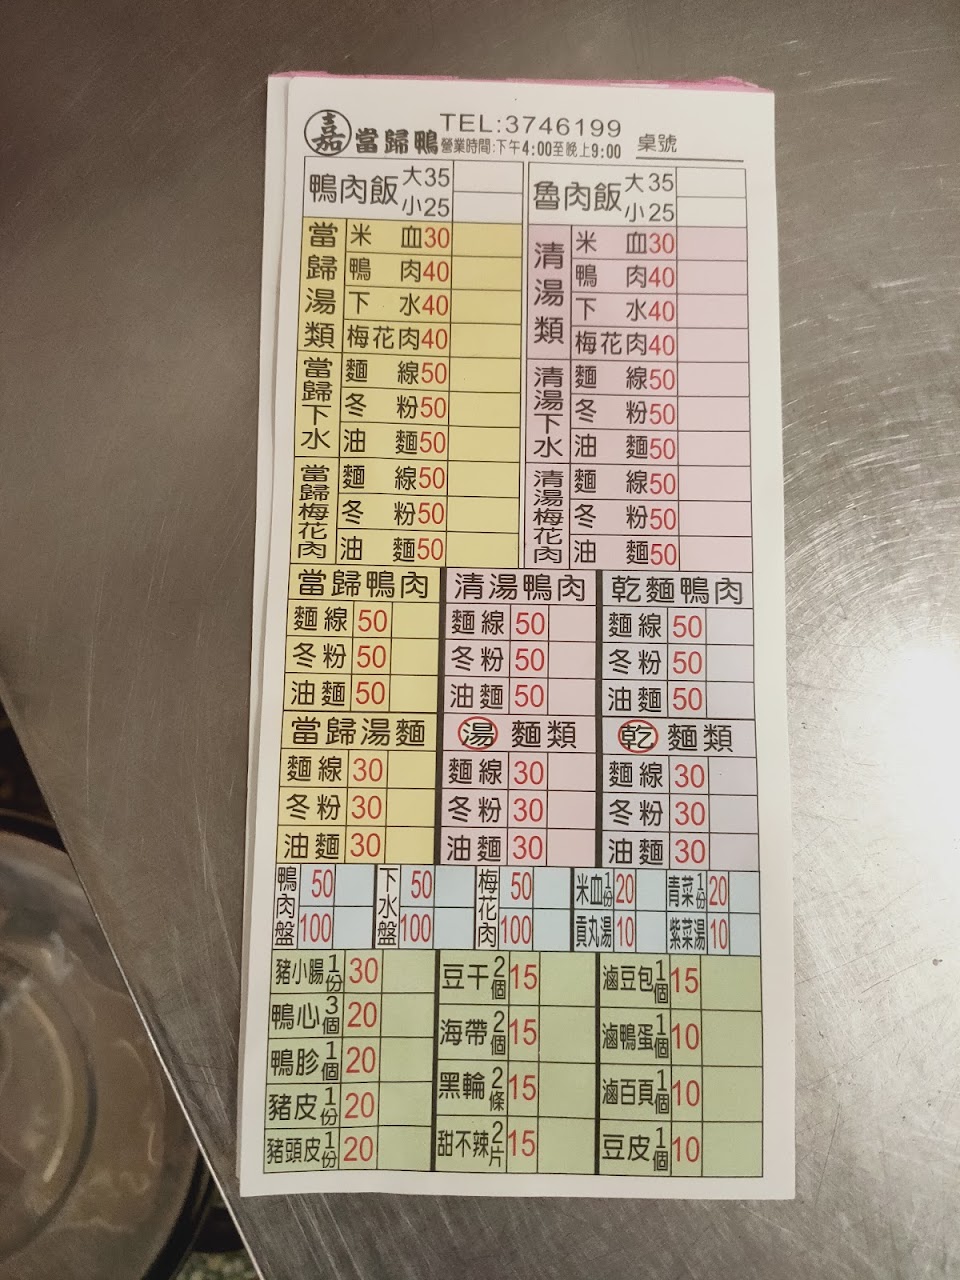 嘉 當歸鴨 TEL:3746199
營業時間:下午4:00至晚上9:00 桌號
鴨肉飯 大35 小25
魯肉飯 大35 小25
當歸湯類
米血30
鴨肉40
下水40
梅花肉40
當歸下水
麵線50
冬粉50
油麵50
當歸梅花肉
麵線50
冬粉50
油麵50
清湯類
米血30
鴨肉40
下水40
梅花肉40
清湯下水
麵線50
冬粉50
油麵50
清湯梅花肉
麵線50
冬粉50
油麵50
當歸鴨肉
麵線50
冬粉50
油麵50
清湯鴨肉
麵線50
冬粉50
油麵50
乾麵鴨肉
麵線50
冬粉50
油麵50
當歸湯麵
麵線30
冬粉30
油麵30
湯麵類
麵線30
冬粉30
油麵30
乾麵類
麵線30
冬粉30
油麵30
鴨肉盤 50 100
下水盤 50 100
梅花肉 50 100
米血1份20
青菜1份20
貢丸湯10
紫菜湯10
豬小腸1份30
鴨心3個20
鴨胗1個20
豬皮1份20
豬頭皮1份20
豆干2個15
海帶2個15
黑輪2條15
甜不辣2片15
滷豆包1個15
滷鴨蛋1個10
滷百頁1個10
豆皮1個10